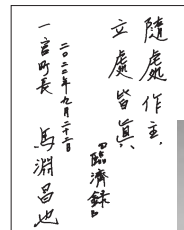 隨處作主，
立處皆眞
『臨濟録』
二〇二二年九月二十二日
一宮町長　馬淵昌也